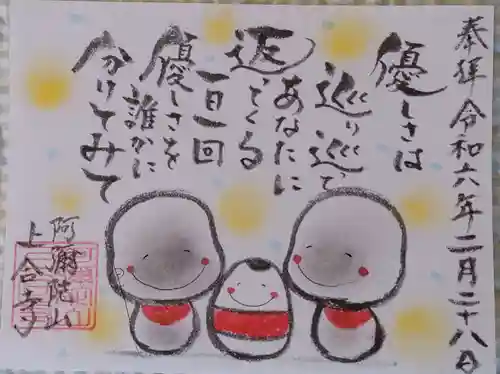 奉拝 令和六年二月二十八日
優しさは
巡り巡って
あなたに
返ってくる
一日一回
優しさを
誰かに
分けてみて
阿彌陀山
上合寺